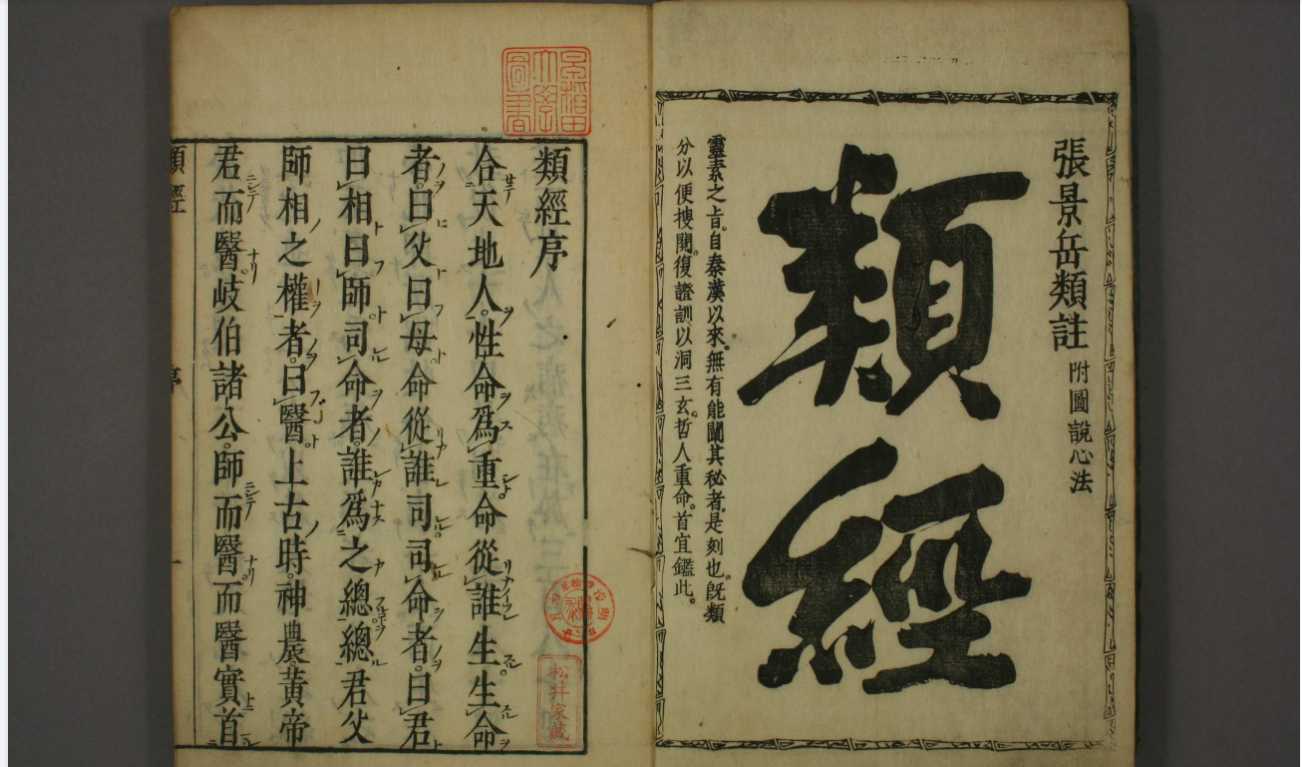 張景岳類註 附圖說心法
類經
靈素之旨。自秦漢以來。無有能闡其秘者。是刻也。旣類
分以便搜閱。復證訓以洞三玄。哲人重命。首宜鑑此。
類經序
合天地人。性命爲重命從誰生。生命
者。曰父曰母命從誰司司命者。曰君
曰相曰師司命者。誰爲之總。總君父
師相之權者。曰醫。上古時。神農黄帝
君而醫。岐伯諸公。師而醫。而醫實首
類經
序
一
早稻田大學圖書
松井家藏